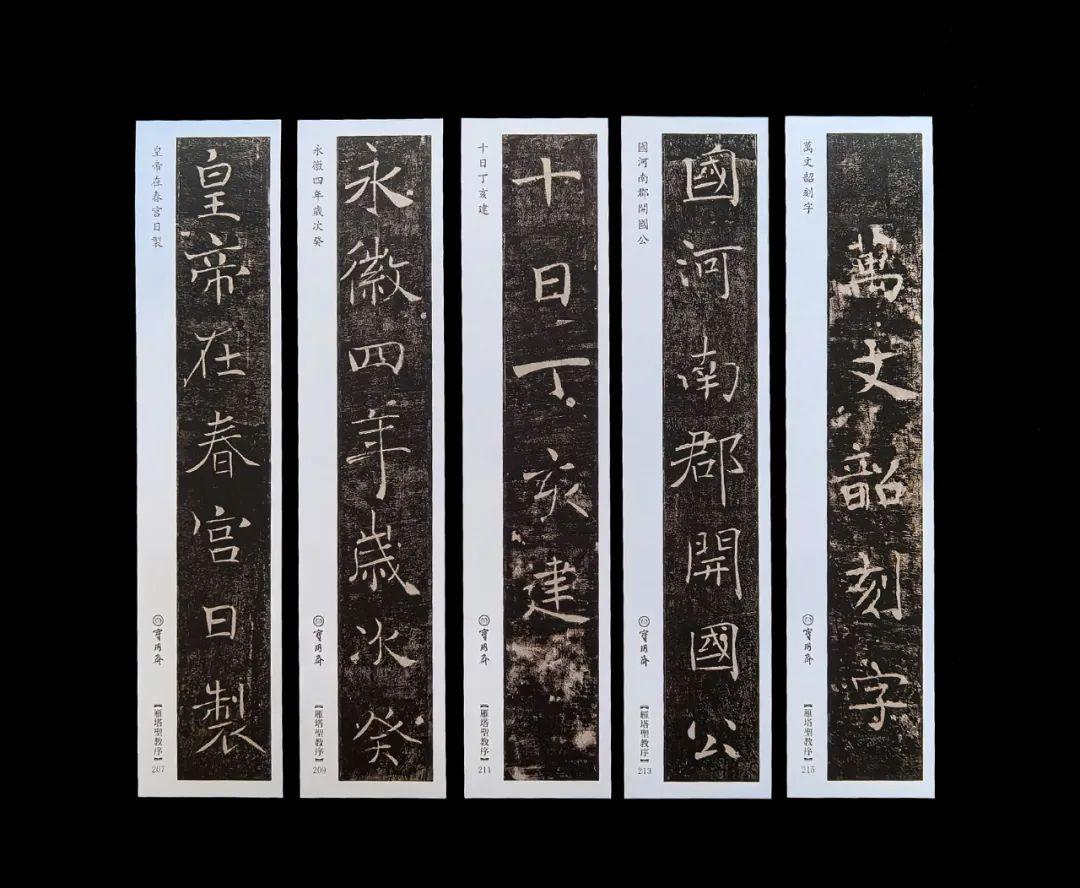 皇帝在春宮日製
皇帝在春宮日製
【雁塔聖教序】
207
永徽四年歲次癸
永徽四年歲次癸
【雁塔聖教序】
209
十日丁亥建
十日丁亥建
【雁塔聖教序】
211
國河南郡開國公
國河南郡開國公
【雁塔聖教序】
213
萬文韶刻字
萬文韶刻字
【雁塔聖教序】
215